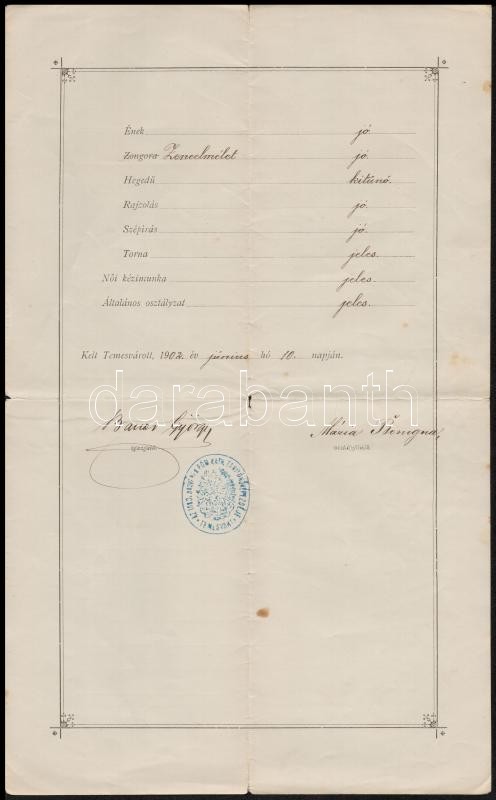 Ének jó.
Zongora Zeneelmélet jó.
Hegedű kitünő.
Rajzolás jó.
Szépirás jó.
Torna jeles.
Női kézimunka jeles.
Általános osztályzat jeles.
Kelt Temesvárott, 1902. év június hó 10. napján.
darabanth
Bauer György
Mária Benigna,
igazgató.